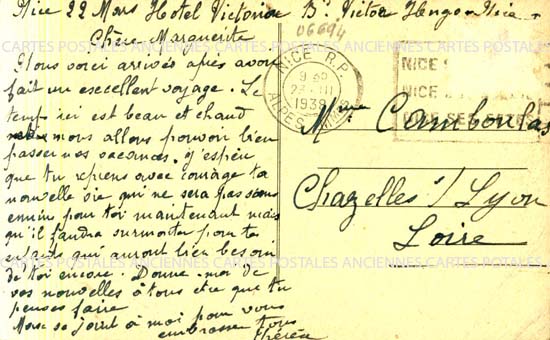 Nice 22 Mars Hotel Victoria Bd Victor Hugo Nice
06694
Chère Marguerite
Nous voici arrivés après avoir
fait un excellent voyage. Le
temps ici est beau et chaud
nous allons pouvoir bien
passer nos vacances. J'espère
que tu reprens avec courage ta
nouvelle vie qui ne sera pas sans
ennuie pour toi maintenant mais
qu'il faudra surmonter pour tes
enfants qui auront bien besoin
de toi encore. Donne-moi de
vos nouvelles à tous et ce que tu
penses faire
se joint à moi pour vous
embrasser tous
NICE R.P.
9 30
1938
ALPES MMES
NICE
NICE
NICE SES FÊTES
Mme Camboulas
Chazelles s/ Lyon
Loire
CARTES POSTALES ANCIENNES CARTES POSTALES ANCIENNES CARTES POSTALES